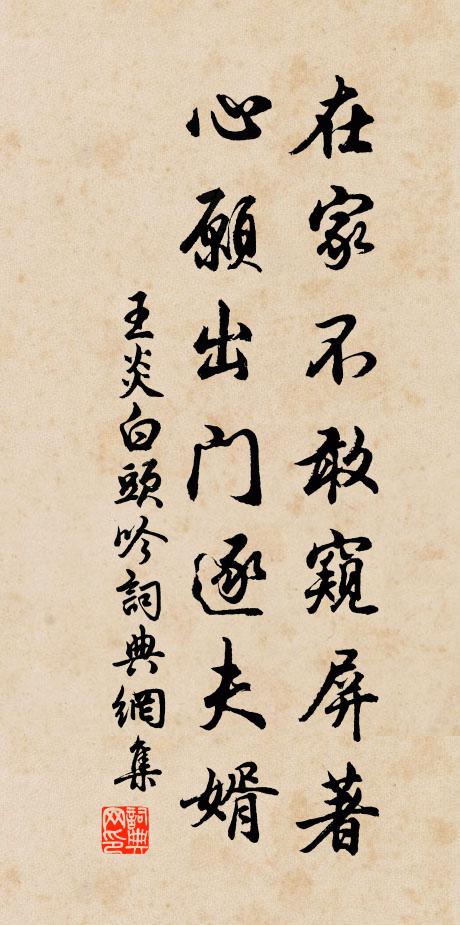 在家不敢窺屏著
心願出門逐夫婿
王炎白頭吟詞典網集
詞典網印